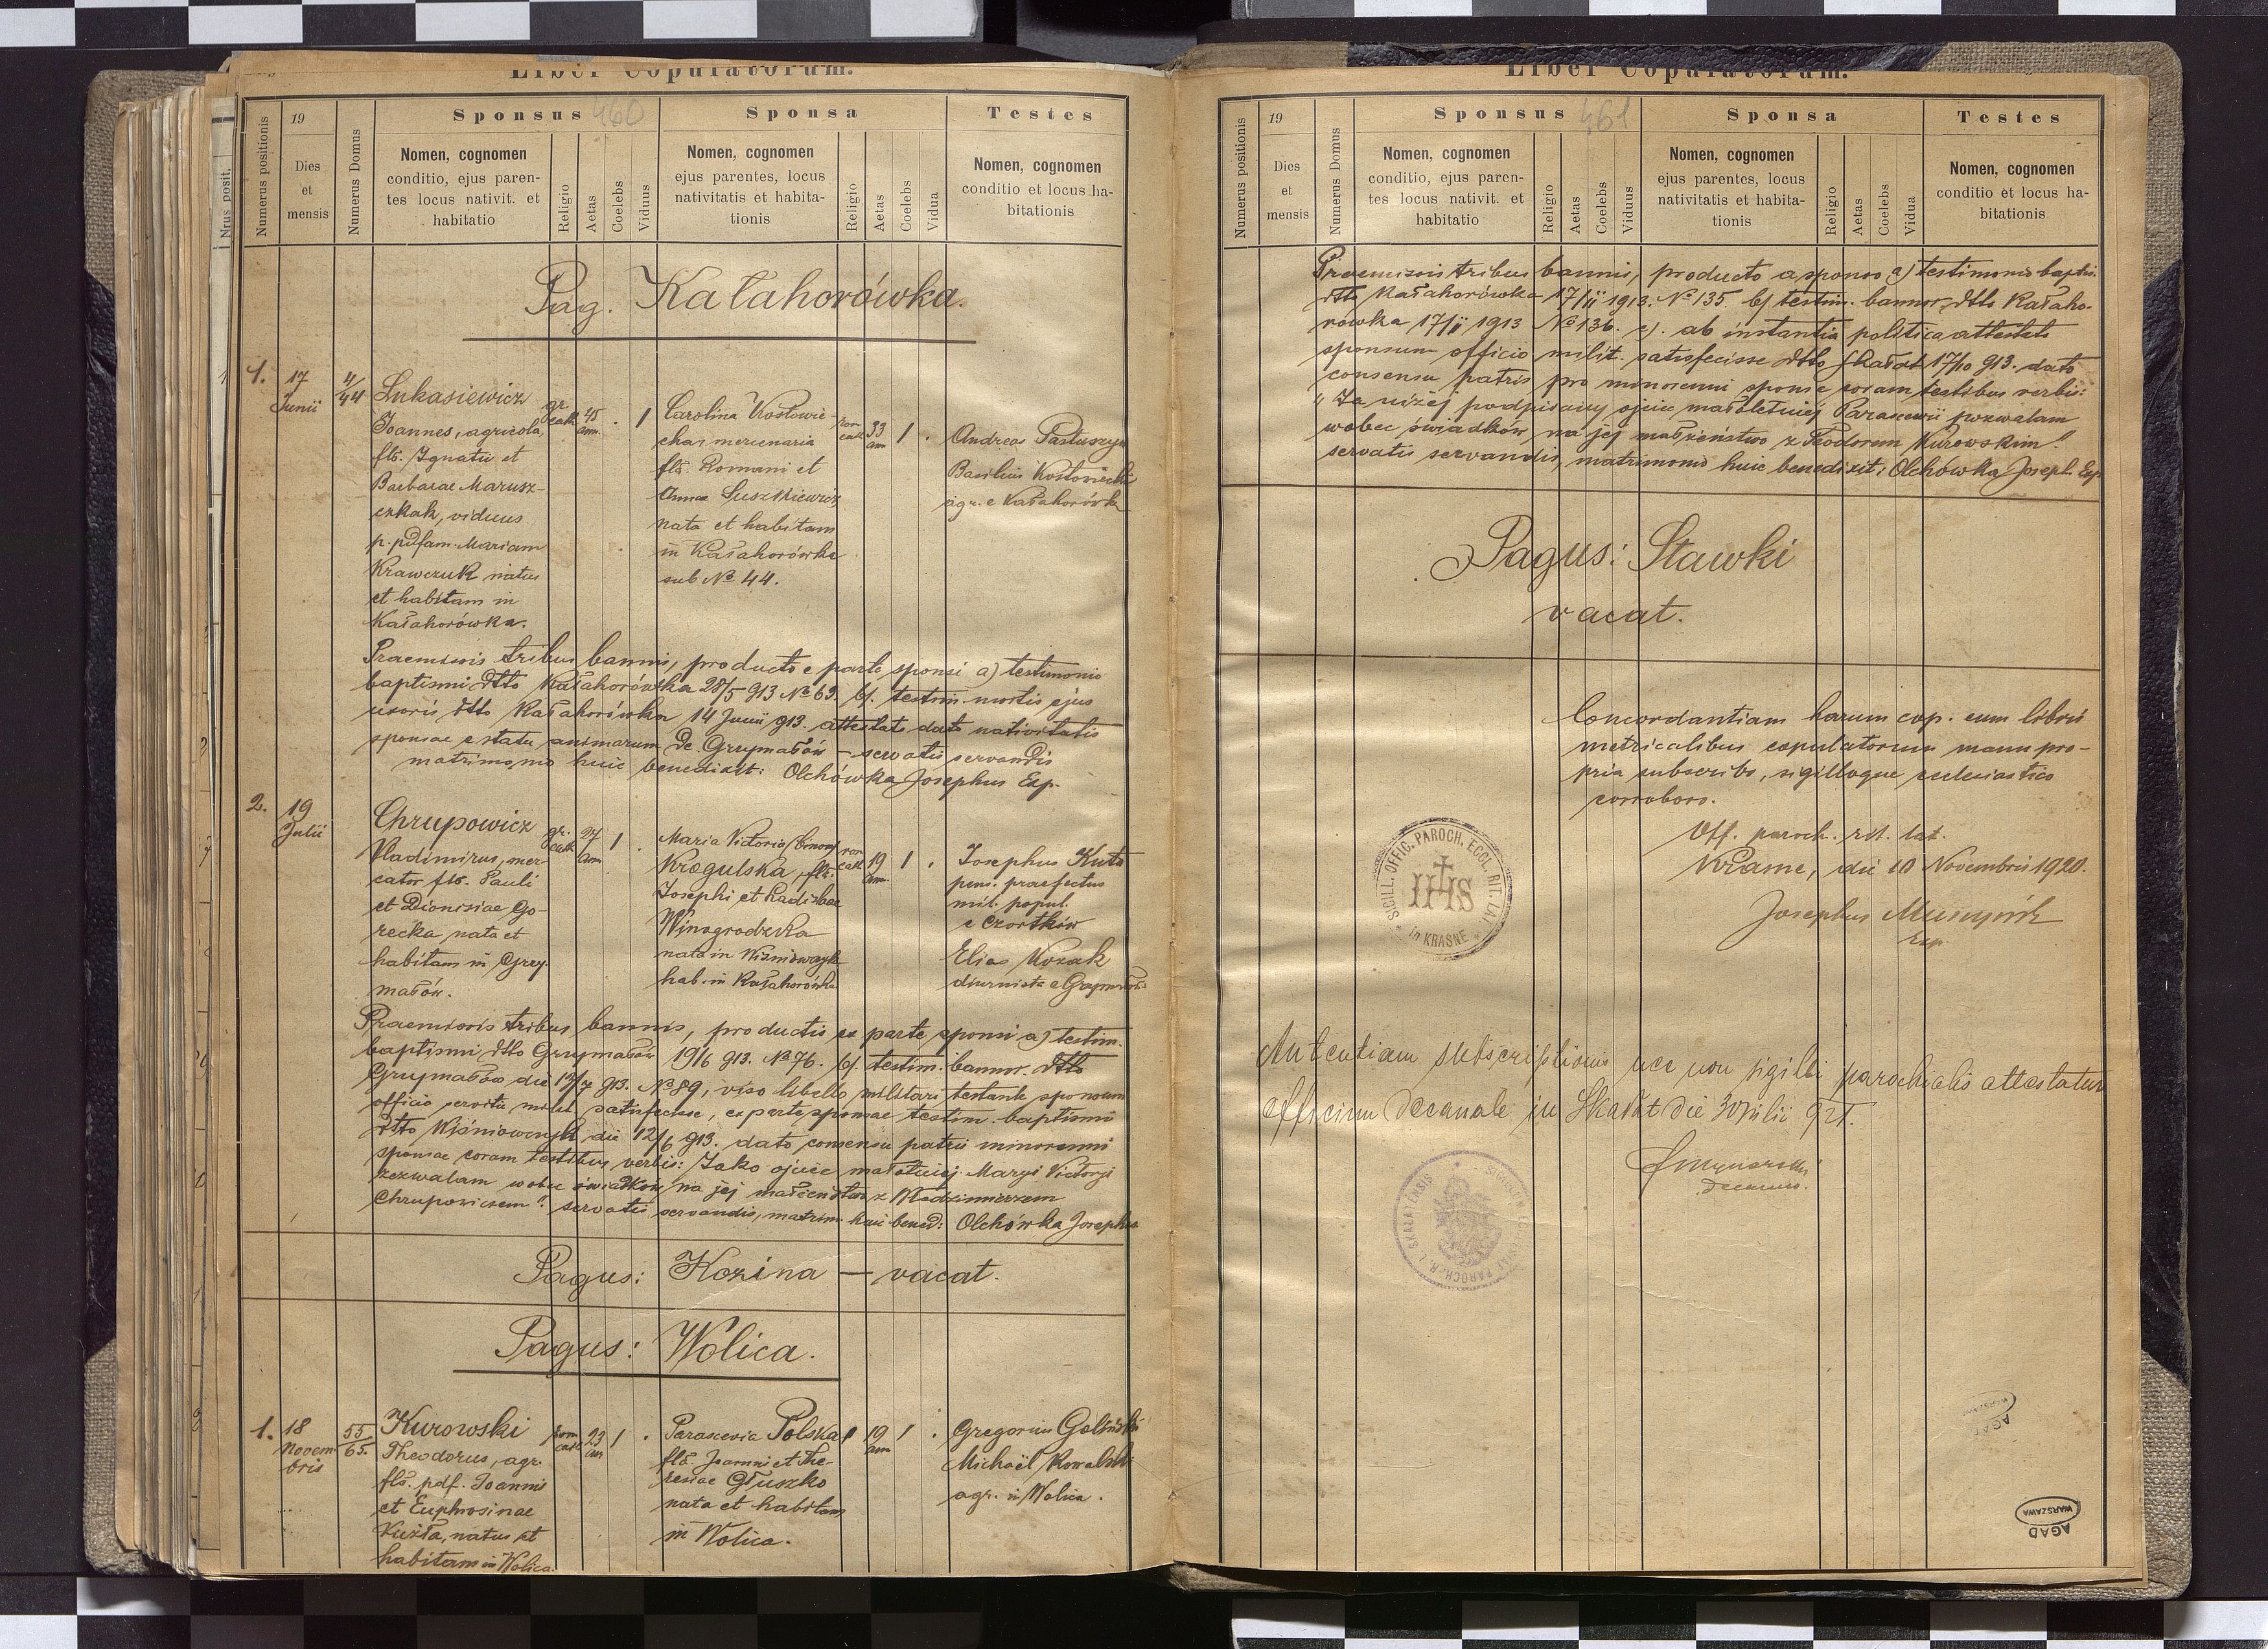 Liber Copulatorum.
460
Numerus positionis
19
Dies et mensis
Numerus Domus
Sponsus
Nomen, cognomen
conditio, ejus paren-
tes locus nativit. et
habitatio
Religio
Aetas
Coelebs
Viduus
Sponsa
Nomen, cognomen
ejus parentes, locus
nativitatis et habita-
tionis
Religio
Aetas
Coelebs
Vidua
Testes
Nomen, cognomen
conditio et locus ha-
bitationis
Nrus posit.
Pag. Kałahorówka.
1.
17
Junii
4/44
Łukasiewicz
Joannes, agricola,
fls. Ignatii et
Barbarae Marusz-
czkah, viduus
p. pdfam. Mariam
Krawczuk natus
et habitans in
Kałahorówka.
gr.
cath.
45
ann.
1
Carolina
mercenaria
fla. Romani et
Annae Luszkiewicz
nata et habitans
in Kałahorówka
sub No 44.
rom
cath
33
ann
1
Andreas Pastuszyn
Basilius
agr. e Kałahorówka
Praemissis tribus bannis, producto e parte sponsi a) testimonio
baptismi dtto Kałahorówka 28/5 913 No 69. b). testim. mortis ejus
uxoris dtto Kałahorówka 14 Junii 913. attestato dato nativitatis
sponsae e statu animarum de Grzymałów — servatis servandis
matrimonio huic benedixit: Olchówka Josephus Exp.
2.
19
Julii
Chrupowicz
Vladimirus, mer-
cator fls. Pauli
et Dionisiae Go-
recka nata et
habitans in Grzy-
małów.
gr.
cath
27
ann
1
Maria Victoria
Krogulska, fla.
Josephi et Ladislae
Winogrodzka
nata in Wiśniowczyk
hab. in Kałahorówka
rom
cath
19
ann.
1
Josephus Kuta
pens. praefectus
mil. popul.
e Czortków
Elias Kozak
diurnista e Grzymałów
Praemissis tribus bannis, productis ex parte sponsi a) testim.
baptismi dtto Grzymałów 19/6 913. No 76. b). testim. bannor. dtto
Grzymałów die 19/7 913. No 89, viso libello militari testante sponsum
officio servitii milit. satisfecisse, ex parte sponsae testim. baptismi
dtto Wiśniowczyk die 12/6 913. dato consensu patris minorenni
sponsae coram testibus verbis: Jako ojciec małoletniej Maryi Victoryi
zezwalam wobec świadków na jej małżeństwo z Włodzimierzem
Chrupowiczem". servatis servandis, matrim. huic bened: Olchówka Josephus
Pagus: Kozina — vacat.
Pagus: Wolica.
1.
18
Novem-
bris
55/65.
Kurowski
Theodorus, agr.
fls. pdf. Joannis
et Euphrosinae
Kuźla, natus et
habitans in Wolica.
rom
cath
23
ann
1
Parascevia Polska
fla. Joannis et The-
resiae Głuszko
nata et habitans
in Wolica.
19
ann
1
Gregorius Goliński
Michael Kowalski
agr. in Wolica.
Liber Copulatorum.
461
Numerus positionis
19
Dies et mensis
Numerus Domus
Sponsus
Nomen, cognomen
conditio, ejus paren-
tes locus nativit. et
habitatio
Religio
Aetas
Coelebs
Viduus
Sponsa
Nomen, cognomen
ejus parentes, locus
nativitatis et habita-
tionis
Religio
Aetas
Coelebs
Vidua
Testes
Nomen, cognomen
conditio et locus ha-
bitationis
Praemissis tribus bannis, producto a sponso a) testimonio baptis.
dtto Kałahorówka 17/11 1913. No 135. b) testim. bannor. dtto Kałaho-
rówka 17/11 1913 No 136. c). ab instantia politica attestato
sponsum officio milit. satisfecisse dtto Skałat 17/10 913. dato
consensu patris pro minorenni sponsae coram testibus verbis:
"Ja niżej podpisany ojciec małoletniej Parascevii pozwalam
wobec świadków na jej małżeństwo z Teodorem Kurowskim"
servatis servandis, matrimonio huic benedixit: Olchówka Joseph. Exp.
Pagus: Stawki
vacat.
Concordantiam harum cop. cum libris
metricalibus copulatorum manu pro-
pria subscribo, sigilloque ecclesiastico
corroboro.
Off. paroch. rit. lat.
Krasne, die 10 Novembris 1920.
Josephus
Exp.
SIGILL. OFFIC. PAROCH. ECCL. RIT. LAT. in KRASNE
IHS
Autentiam subscriptionis nec non sigilli parochialis attestatur
officium Decanale in Skałat die 30 Julii 921.
Decanus.
AGAD
WARSZAWA
AGAD
WARSZAWA